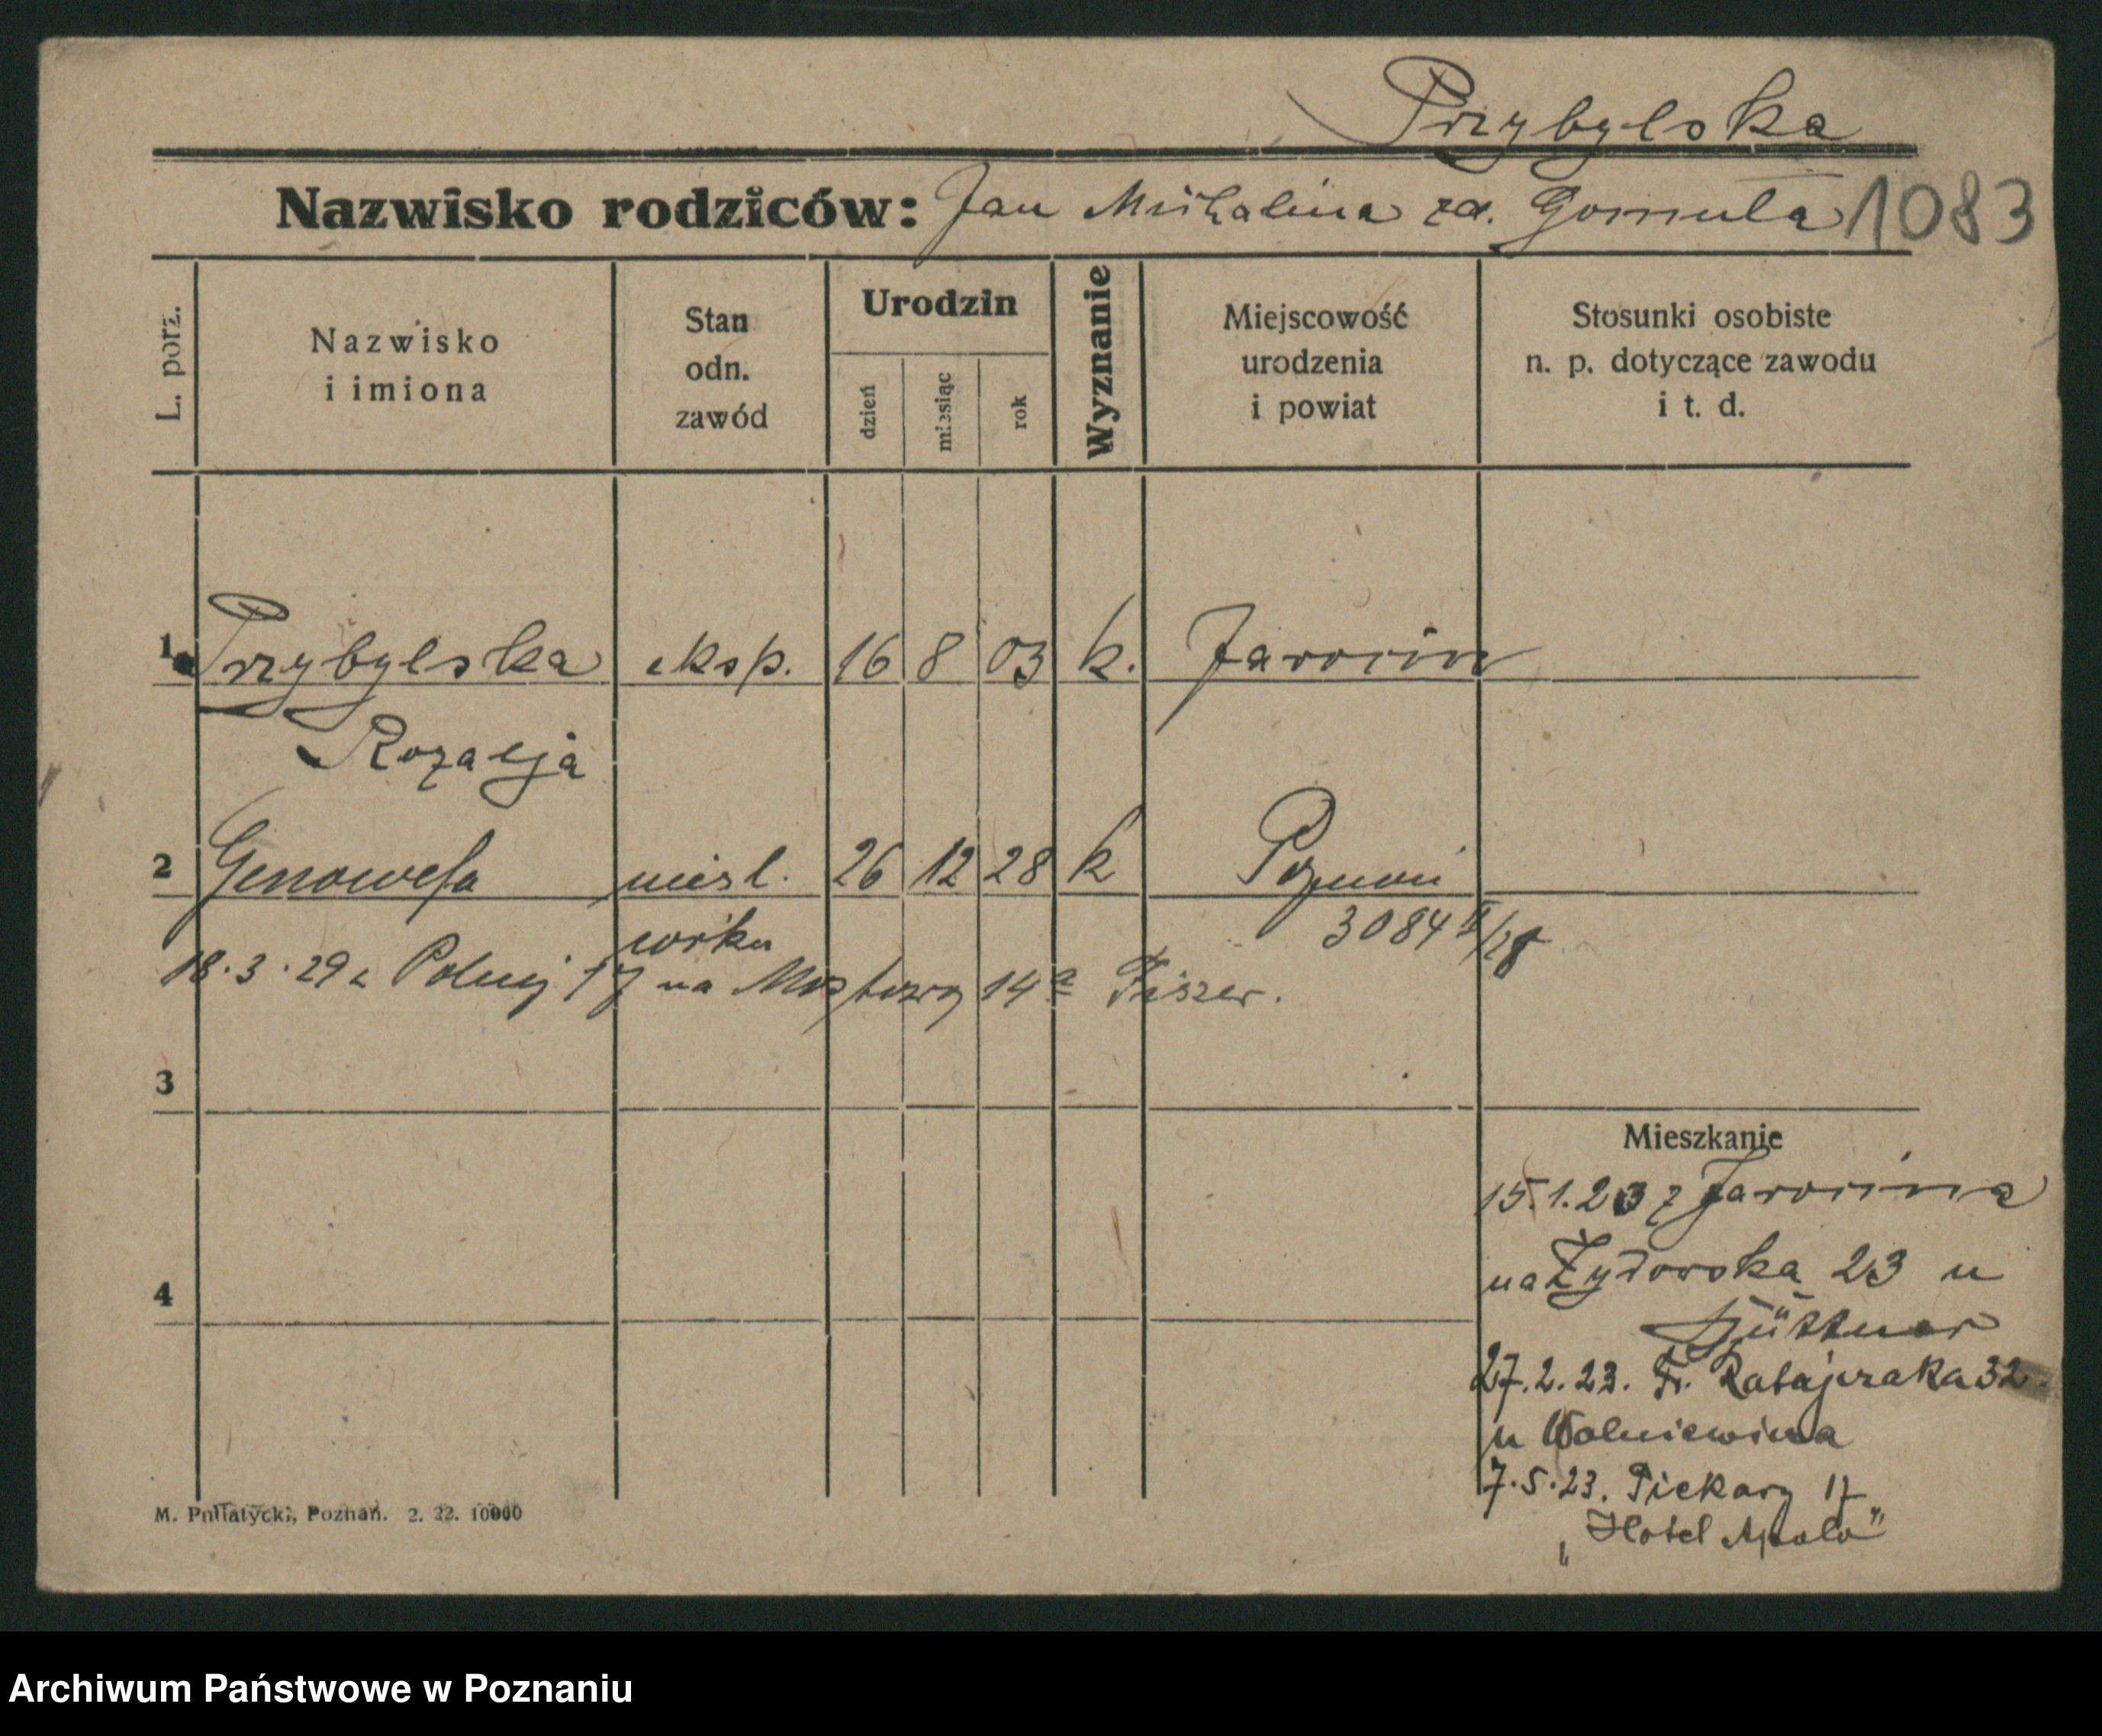 Przybylska
Nazwisko rodziców: Jan Michalina zd. Gomuła 1083
L. porz.
Nazwisko
i imiona
Stan
odn.
zawód
Urodzin
dzień
miesiąc
rok
Wyznanie
Miejscowość
urodzenia
i powiat
Stosunki osobiste
n. p. dotyczące zawodu
i t. d.
1 Przybylska eksp. 16 8 03 k. Jarocin
Rozalja
2 Genowefa nieśl. 26 12 28 k Poznań
córka 3084
18.3.29 z Polnej 17 na Mostową 14a Fiszer.
3
4
Mieszkanie
15.1.23 z Jarocina
na Żydowska 23 u
27.2.23. Fr. Ratajczaka 32
u Wolniewicza
7.5.23. Piekary 17
„Hotel Apolo"
M. Putiatycki, Poznań. 2. 22. 10000
Archiwum Państwowe w Poznaniu